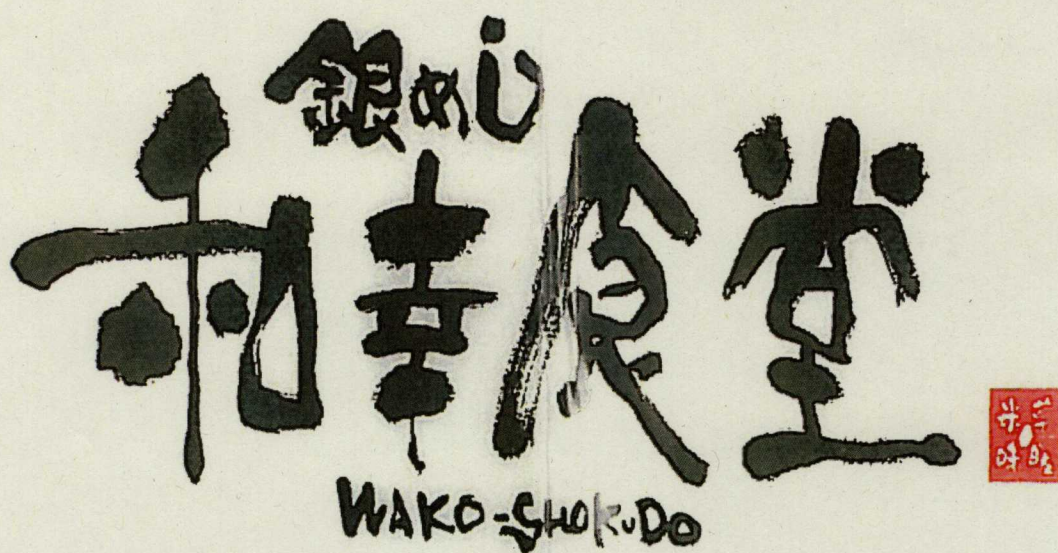 銀めし
和幸食堂
WAKO-SHOKUDO